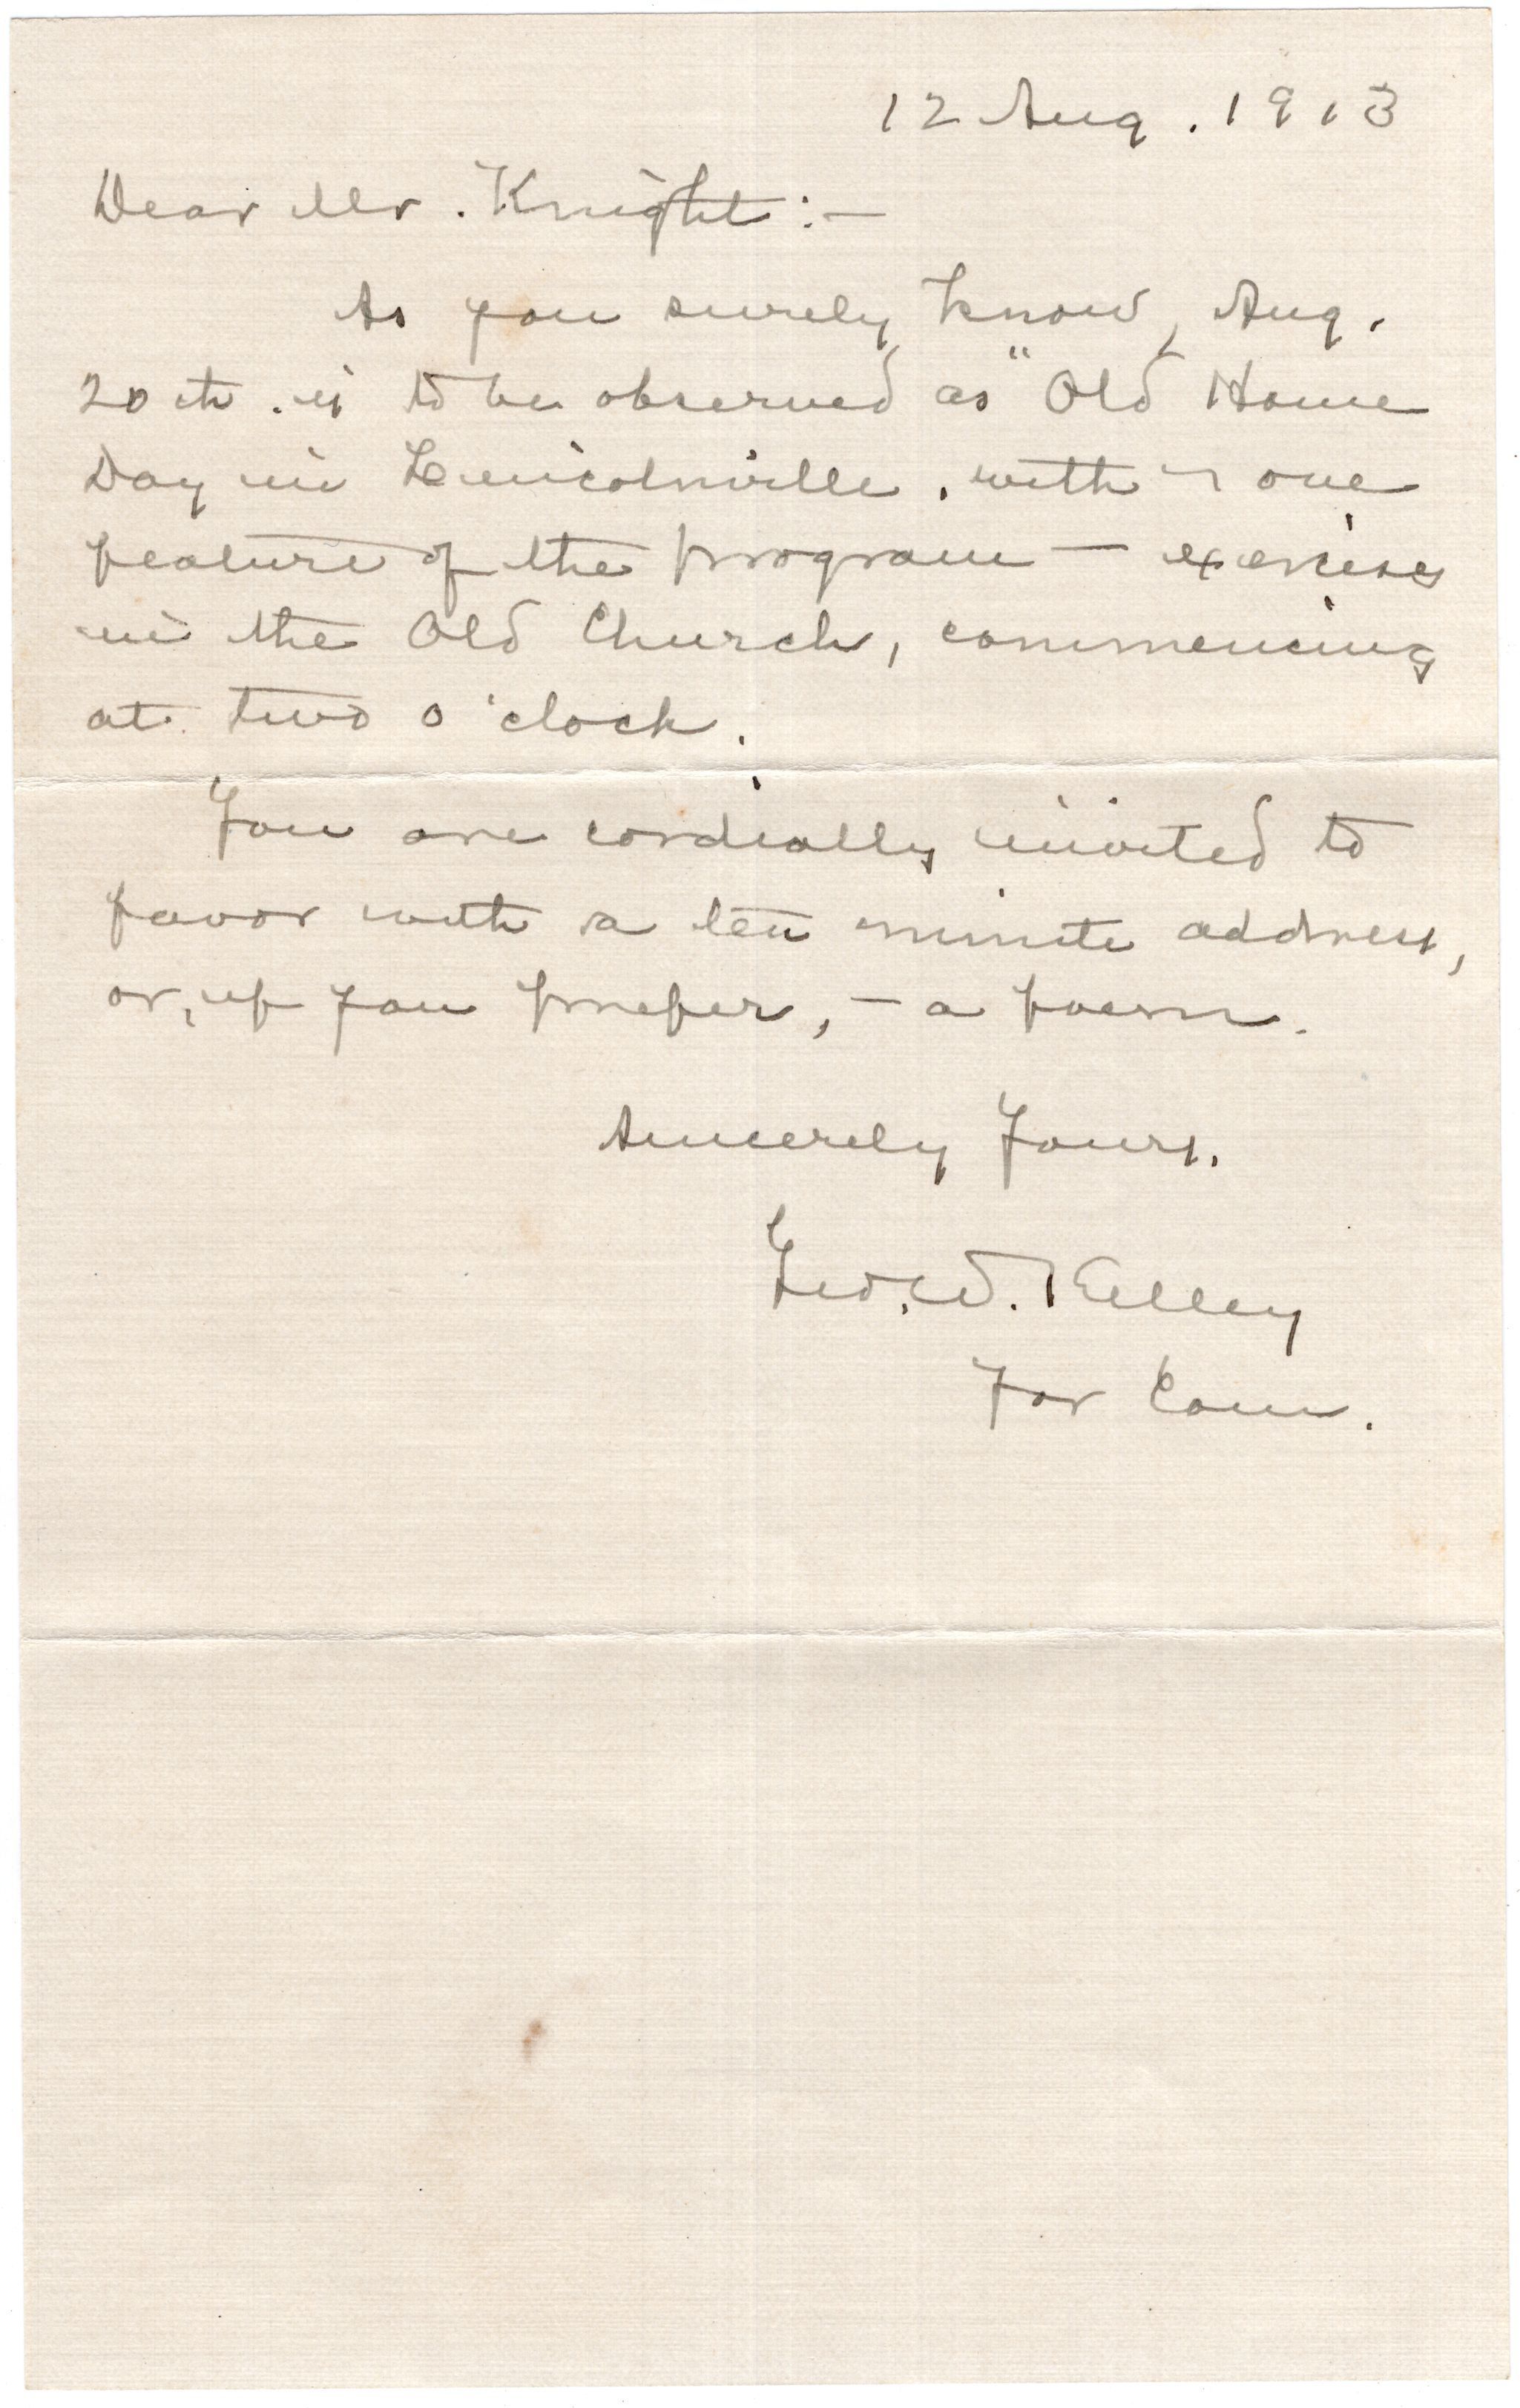 12 Aug. 1913
Dear Mr. Knight:—
As you surely know, Aug.
20th. is to be observed as "Old Home
Day in Lincolnville, with — one
feature of the program — exercises
in the Old Church, commencing
at two o'clock.
You are cordially invited to
favor with a ten minute address,
or, if you prefer, — a poem.
Sincerely Yours,
Geo. W. Kelley
For Com.